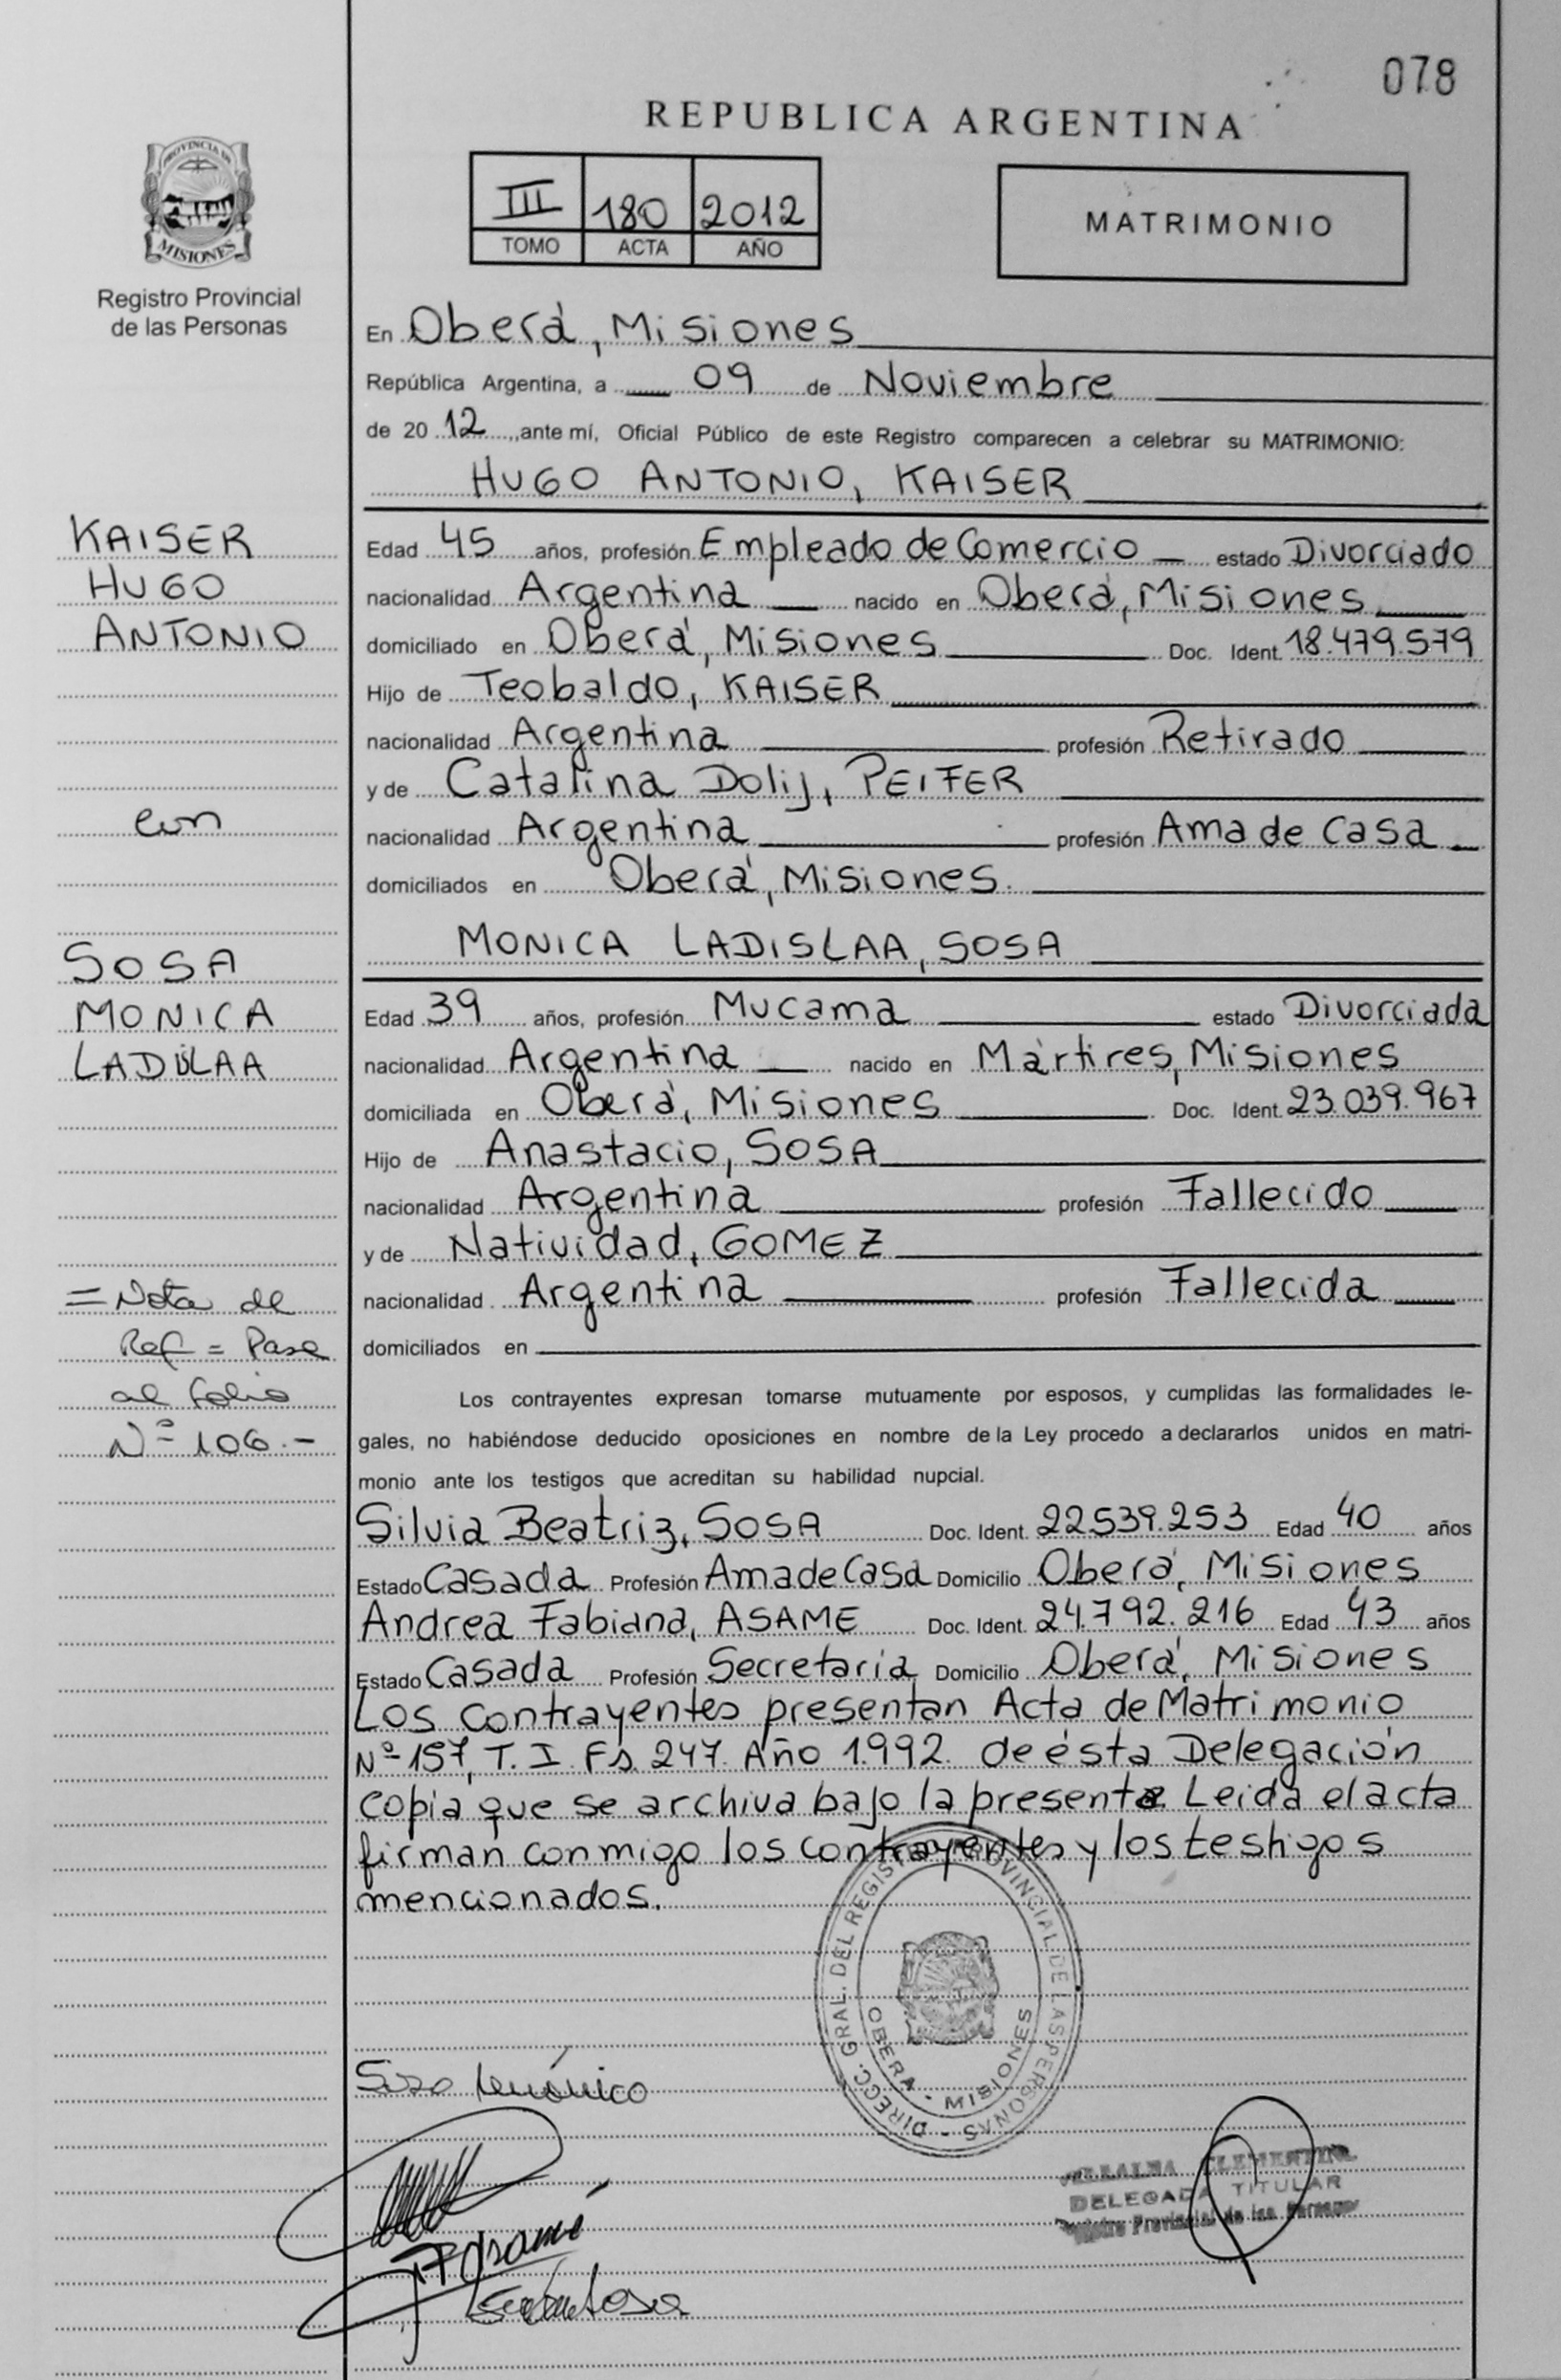 078
REPUBLICA ARGENTINA
PROVINCIA DE
MISIONES
Registro Provincial
de las Personas
III 180 2012
TOMO ACTA AÑO
MATRIMONIO
En Oberá, Misiones
República Argentina, a 09 de Noviembre
de 20 12, ante mí, Oficial Público de este Registro comparecen a celebrar su MATRIMONIO:
HUGO ANTONIO, KAISER
KAISER
HUGO
ANTONIO
con
SOSA
MONICA
LADISLAA
= Nota de
Ref = Pase
al folio
Nº 106.-
Edad 45 años, profesión Empleado de Comercio estado Divorciado
nacionalidad Argentina nacido en Oberá, Misiones
domiciliado en Oberá, Misiones Doc. Ident. 18.479.579
Hijo de Teobaldo, KAISER
nacionalidad Argentina profesión Retirado
y de Catalina Dolij, PEIFER
nacionalidad Argentina profesión Ama de Casa
domiciliados en Oberá, Misiones.
MONICA LADISLAA, SOSA
Edad 39 años, profesión Mucama estado Divorciada
nacionalidad Argentina nacido en Mártires, Misiones
domiciliada en Oberá, Misiones Doc. Ident. 23.039.967
Hijo de Anastacio, SOSA
nacionalidad Argentina profesión Fallecido
y de Natividad, GOMEZ
nacionalidad Argentina profesión Fallecida
domiciliados en
Los contrayentes expresan tomarse mutuamente por esposos, y cumplidas las formalidades le-
gales, no habiéndose deducido oposiciones en nombre de la Ley procedo a declararlos unidos en matri-
monio ante los testigos que acreditan su habilidad nupcial.
Silvia Beatriz, SOSA Doc. Ident. 22.539.253 Edad 40 años
Estado Casada Profesión Ama de Casa Domicilio Oberá, Misiones
Andrea Fabiana, ASAME Doc. Ident. 24.792.216 Edad 43 años
Estado Casada Profesión Secretaria Domicilio Oberá, Misiones
Los Contrayentes presentan Acta de Matrimonio
Nº 157, T. I. Fs. 247. Año 1.992. de ésta Delegación
copia que se archiva bajo la presente. Leida el acta
firman conmigo los contrayentes y los testigos
mencionados.
DIRECC. GRAL. DEL REGISTRO PROVINCIAL DE LAS PERSONAS
OBERA - MISIONES
Sosa Mónica
DELEGADA TITULAR
Registro Provincial de las Personas